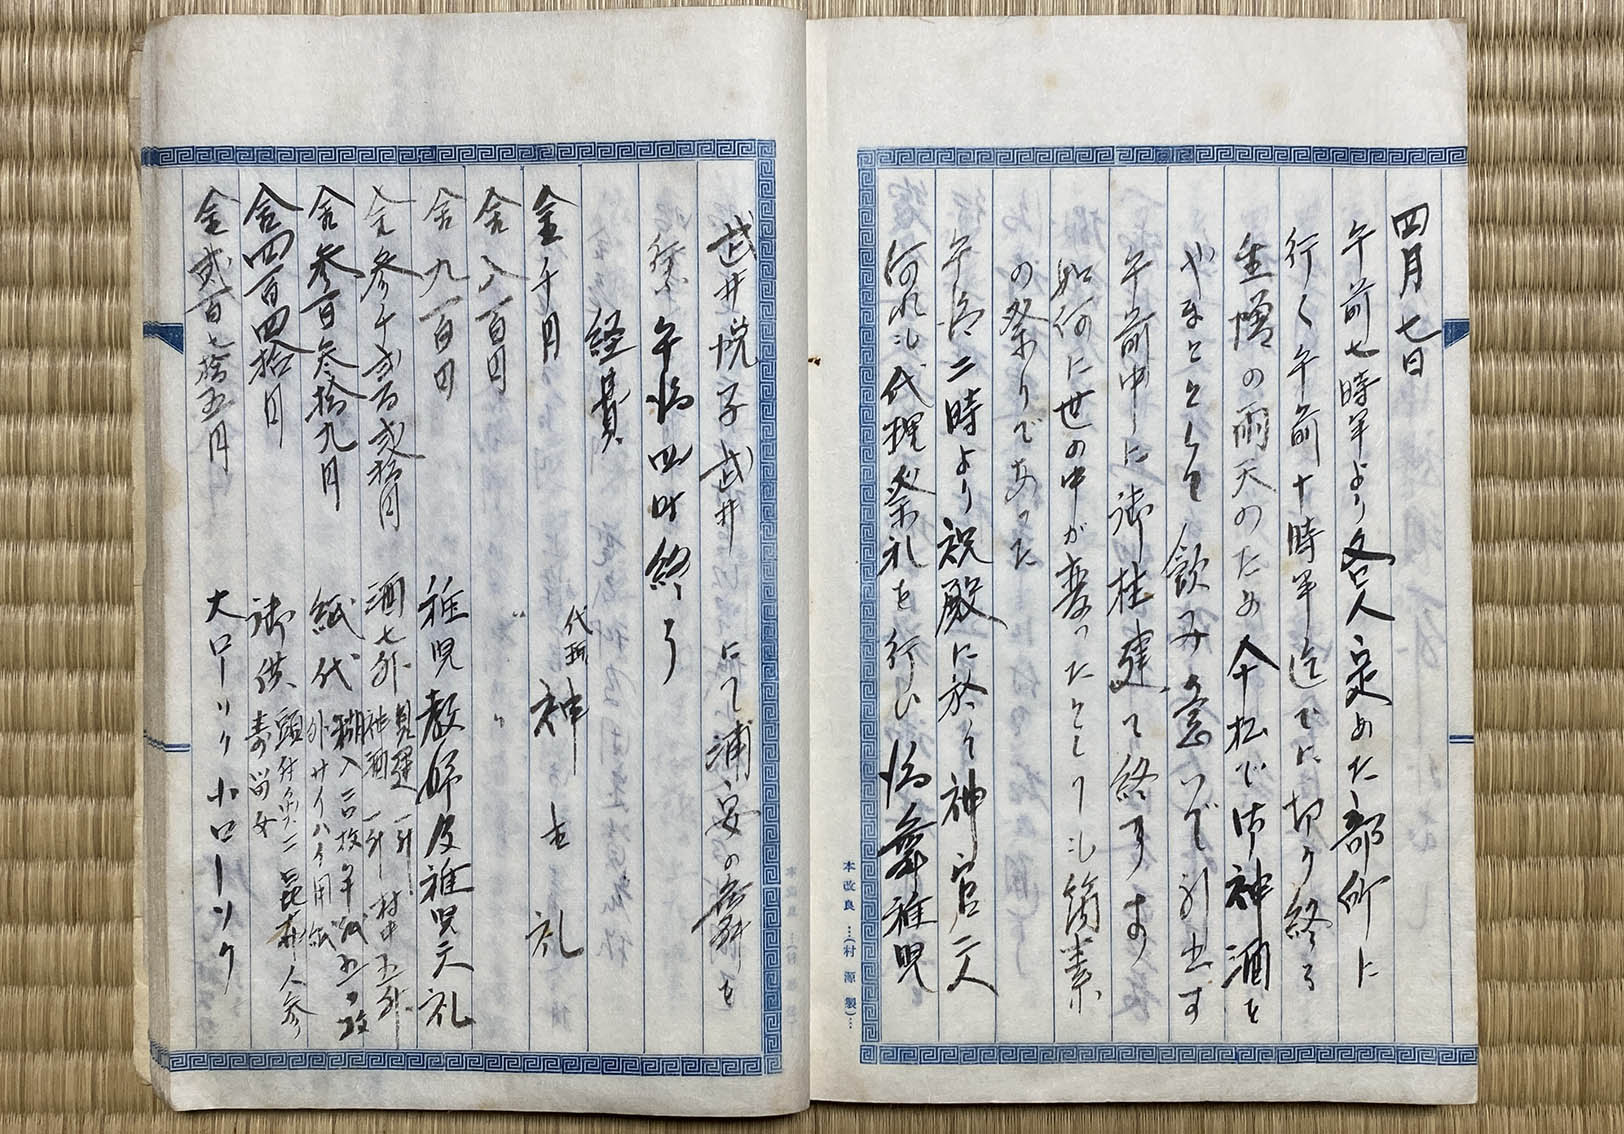 四月七日
午前七時半より各人定めた部所に
行く午前十時半迄でに切り終る
生憎の雨天のため千松で御神酒を
やまととして飲み急いで引出す
午前中に御柱建て終了す
如何に世の中が変ったとしても簡素
の祭りであった
午后二時より祝殿に於て神官二人
何れも代理祭礼を行い后舞稚児
武井悦子武井 にて浦安の舞を
行い午后四時終り
経費
金千円 代理神主礼
金八百円 〃 〃
金九百円 稚児教師及稚児六礼
金参千弐百弐拾円 酒七升 見建一升 神酒一升 村中五升
金参百参拾九円 紙代 糊入二百枚半紙五〇枚 外サイハイ用紙
金四百四拾円 御供 頭付魚二 昆布人参 寿留女
金弐百七拾五円 大ローソク小ローソク
本改良…(村源製)…